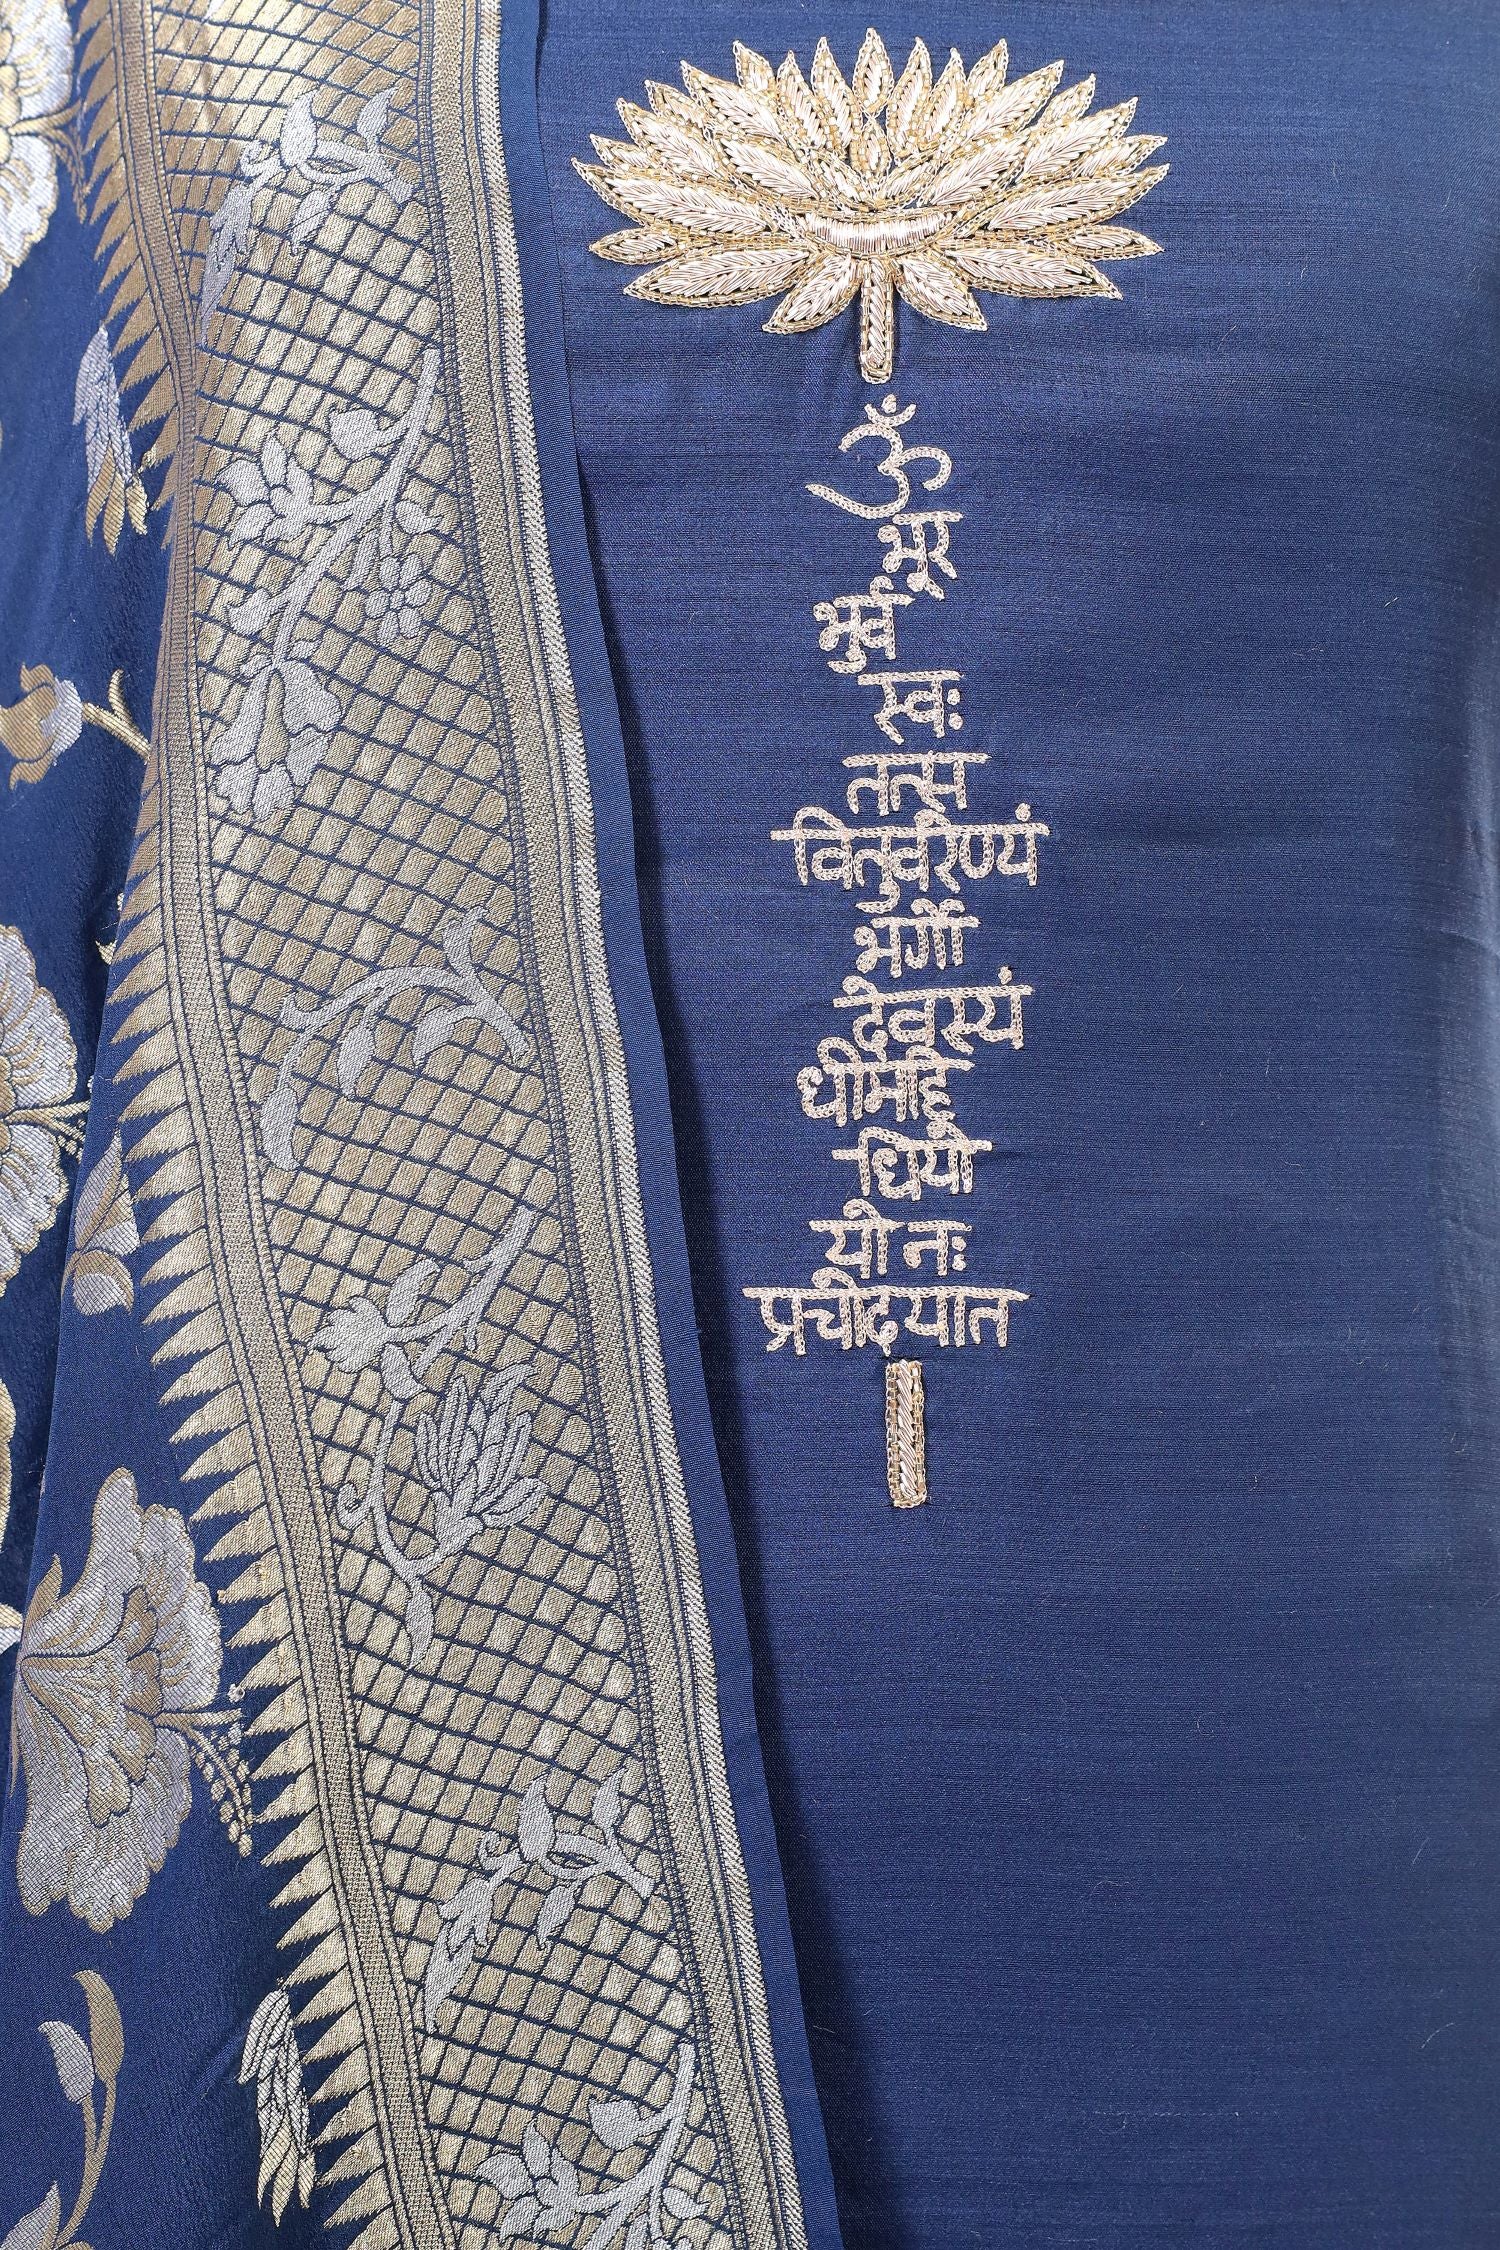 ॐ
भूर
भुर्व
स्वः
तत्स
वितुवरेण्यं
भर्गो
देवस्यं
धीमहि
धियो
यो नः
प्रचोदयात